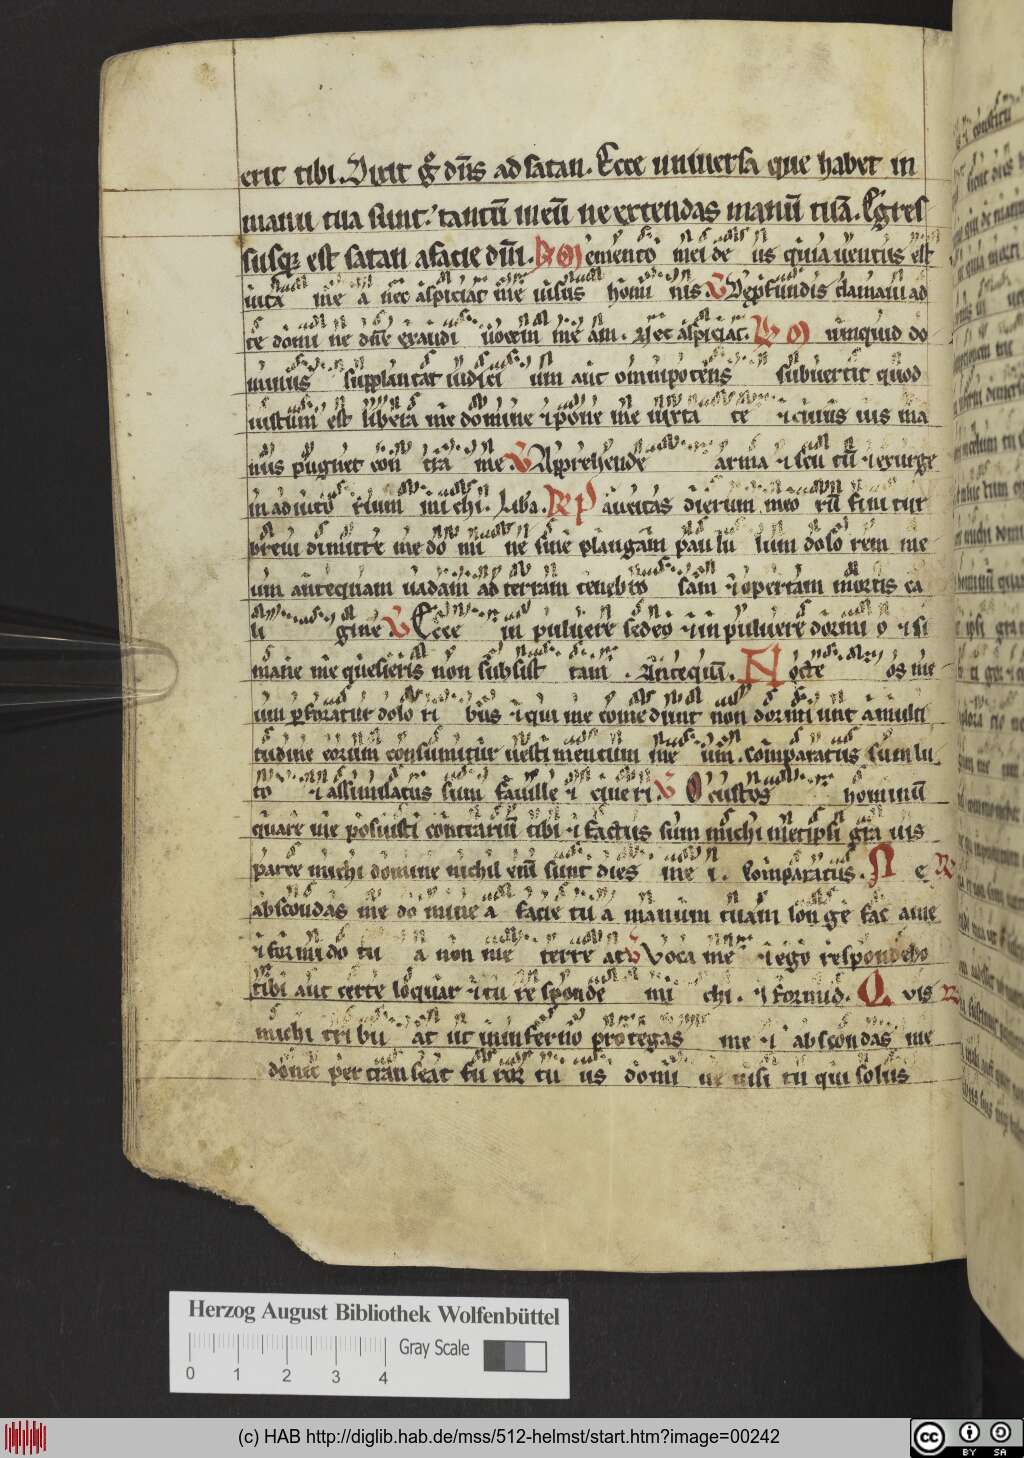 erit tibi. Dixit g̊ dn̄s ad satan. Ecce universa que habet in
manu tua sunt. tantū in eū ne extendas manū tuā. Egres
susqꝫ est satan a facie dn̄i. Memento mei deus quia ventus est
iuta me a nec aspiciat me visus homi nis. V De pfundis clamavi ad
te domi ne dn̄e exaudi vocem me am. Nec aspiciat. Numquid do
minus supplantat iudici um aut omnipotens subvertit quod
iustum est libera me domine ⁊ pone me iuxta te ⁊ cuius vis ma
nus pugnet con tra me. V Apprehende arma ⁊ scu tū ⁊ exurge
in adiuto rium mi chi. Liba. R Pavitas dierum meo rū fini tur
brevi dimitte me do mi ne sine plangam pau lu lum dolo rem me
um antequam vadam ad terram tenebro sam ⁊ opertam mortis ca
li gine V Ecce in pulvere sedeo ⁊ in pulvere dormi o ⁊ si
mane me quesieris non subsist tam. Antequā. Nocte os me
um pforatur dolo ri bus ⁊ qui me comedunt non dormi unt a multi
tudine eorum consumitur vesti mentum me um. comparatus sum lu
to ⁊ assimilatus sum faville ⁊ cineri. V O custos hominū
quare me posuisti contrariū tibi ⁊ factus sum michi metipsi gra vis
parce michi domine nichil eni sunt dies me i. Comparatus. Ne
abscondas me do mine a facie tu a manum tuam longe fac a me
⁊ formido tu a non me terre at V Voca me ⁊ ego respondebo
tibi aut certe loquar ⁊ tu re sponde mi chi. ⁊ formid. Quis
michi tribu at ut in inferno protegas me ⁊ abscondas me
donec pertranseat fu ror tu us domi ne nisi tu qui solus
Herzog August Bibliothek Wolfenbüttel
Gray Scale
0 1 2 3 4
(c) HAB http://diglib.hab.de/mss/512-helmst/start.htm?image=00242
cc BY SA